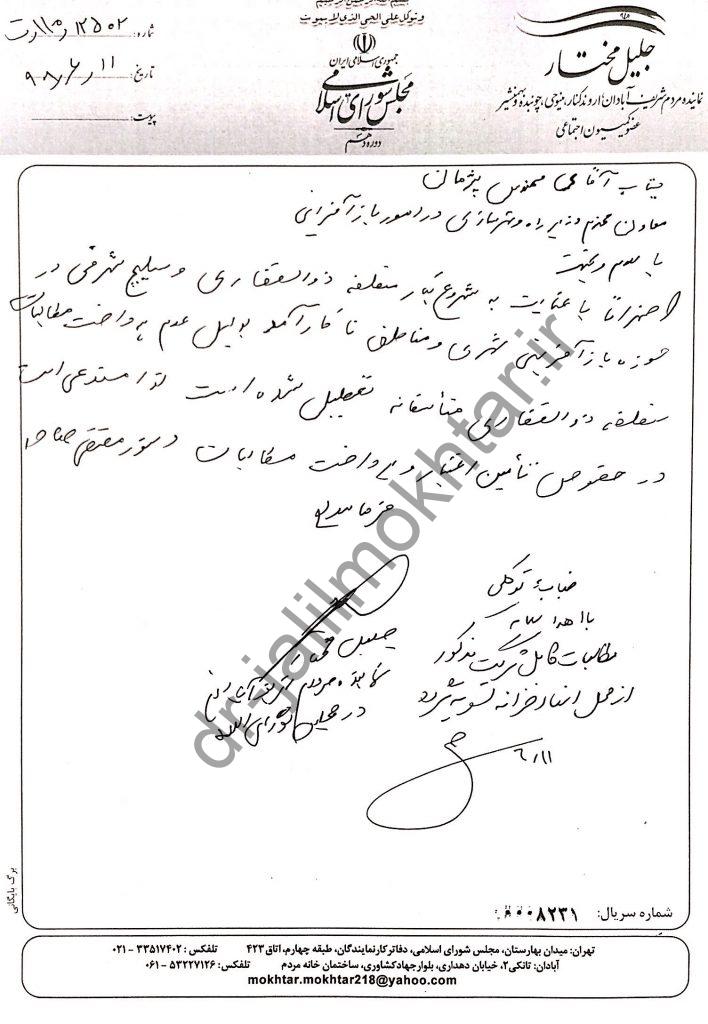 بسم الله الرحمن الرحیم
و توکل علی الحی الذی لا یموت
جمهوری اسلامی ایران
مجلس شورای اسلامی
دوره دهم
جلیل مختار
نماینده مردم شریف آبادان، اروندکنار، مینوحی، چوئبده و بهمنشیر
عضو کمیسیون اجتماعی
شماره:
تاریخ: ۹۸/۶/۱۱
پیوست:
جناب آقای مهندس پژمان
معاون محترم وزیر راه و شهرسازی در امور بازآفرینی
با سلام و تحیت
احتراماً با عنایت به شروع بکار منطقه ذوالفقاری و سیلیچ شرقی در
حوزه بازآفرینی شهری و مناطق ناکارآمد بدلیل عدم پرداخت مطالبات
منطقه ذوالفقاری متأسفانه تعطیل شده است لذا مستدعی است
در خصوص تأمین اعتبار و پرداخت مطالبات دستور مقتضی صادر
فرمایید
جلیل مختار
نماینده مردم شریف آبادان
در مجلس شورای اسلامی
جناب توکلی
با اهداء سلام
مطالبات کامل شرکت مذکور
از محل اسناد خزانه تسویه شود
۶/۱۱
dr-jalilmokhtar.ir
برگ بایگانی
شماره سریال: ۰۰۰۸۲۳۱
تهران: میدان بهارستان، مجلس شورای اسلامی، دفاتر کار نمایندگان، طبقه چهارم، اتاق ۴۲۳ تلفکس: ۳۳۵۱۷۴۰۲ - ۰۲۱
آبادان: تانکی۲، خیابان دهداری، بلوار جهاد کشاوری، ساختمان خانه مردم تلفکس: ۵۳۲۲۷۱۲۶ - ۰۶۱
mokhtar.mokhtar218@yahoo.com